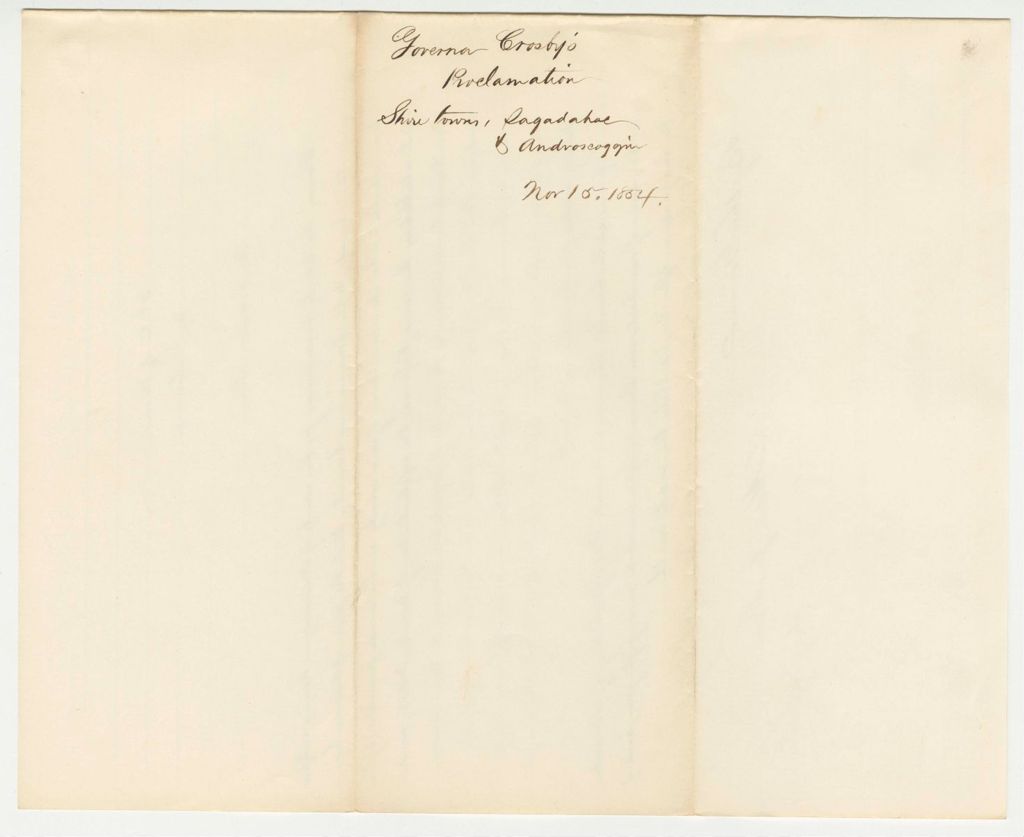 Governor Crosby's
Proclamation
Shire towns, Sagadahoc
& Androscoggin
Nov 15, 1854.